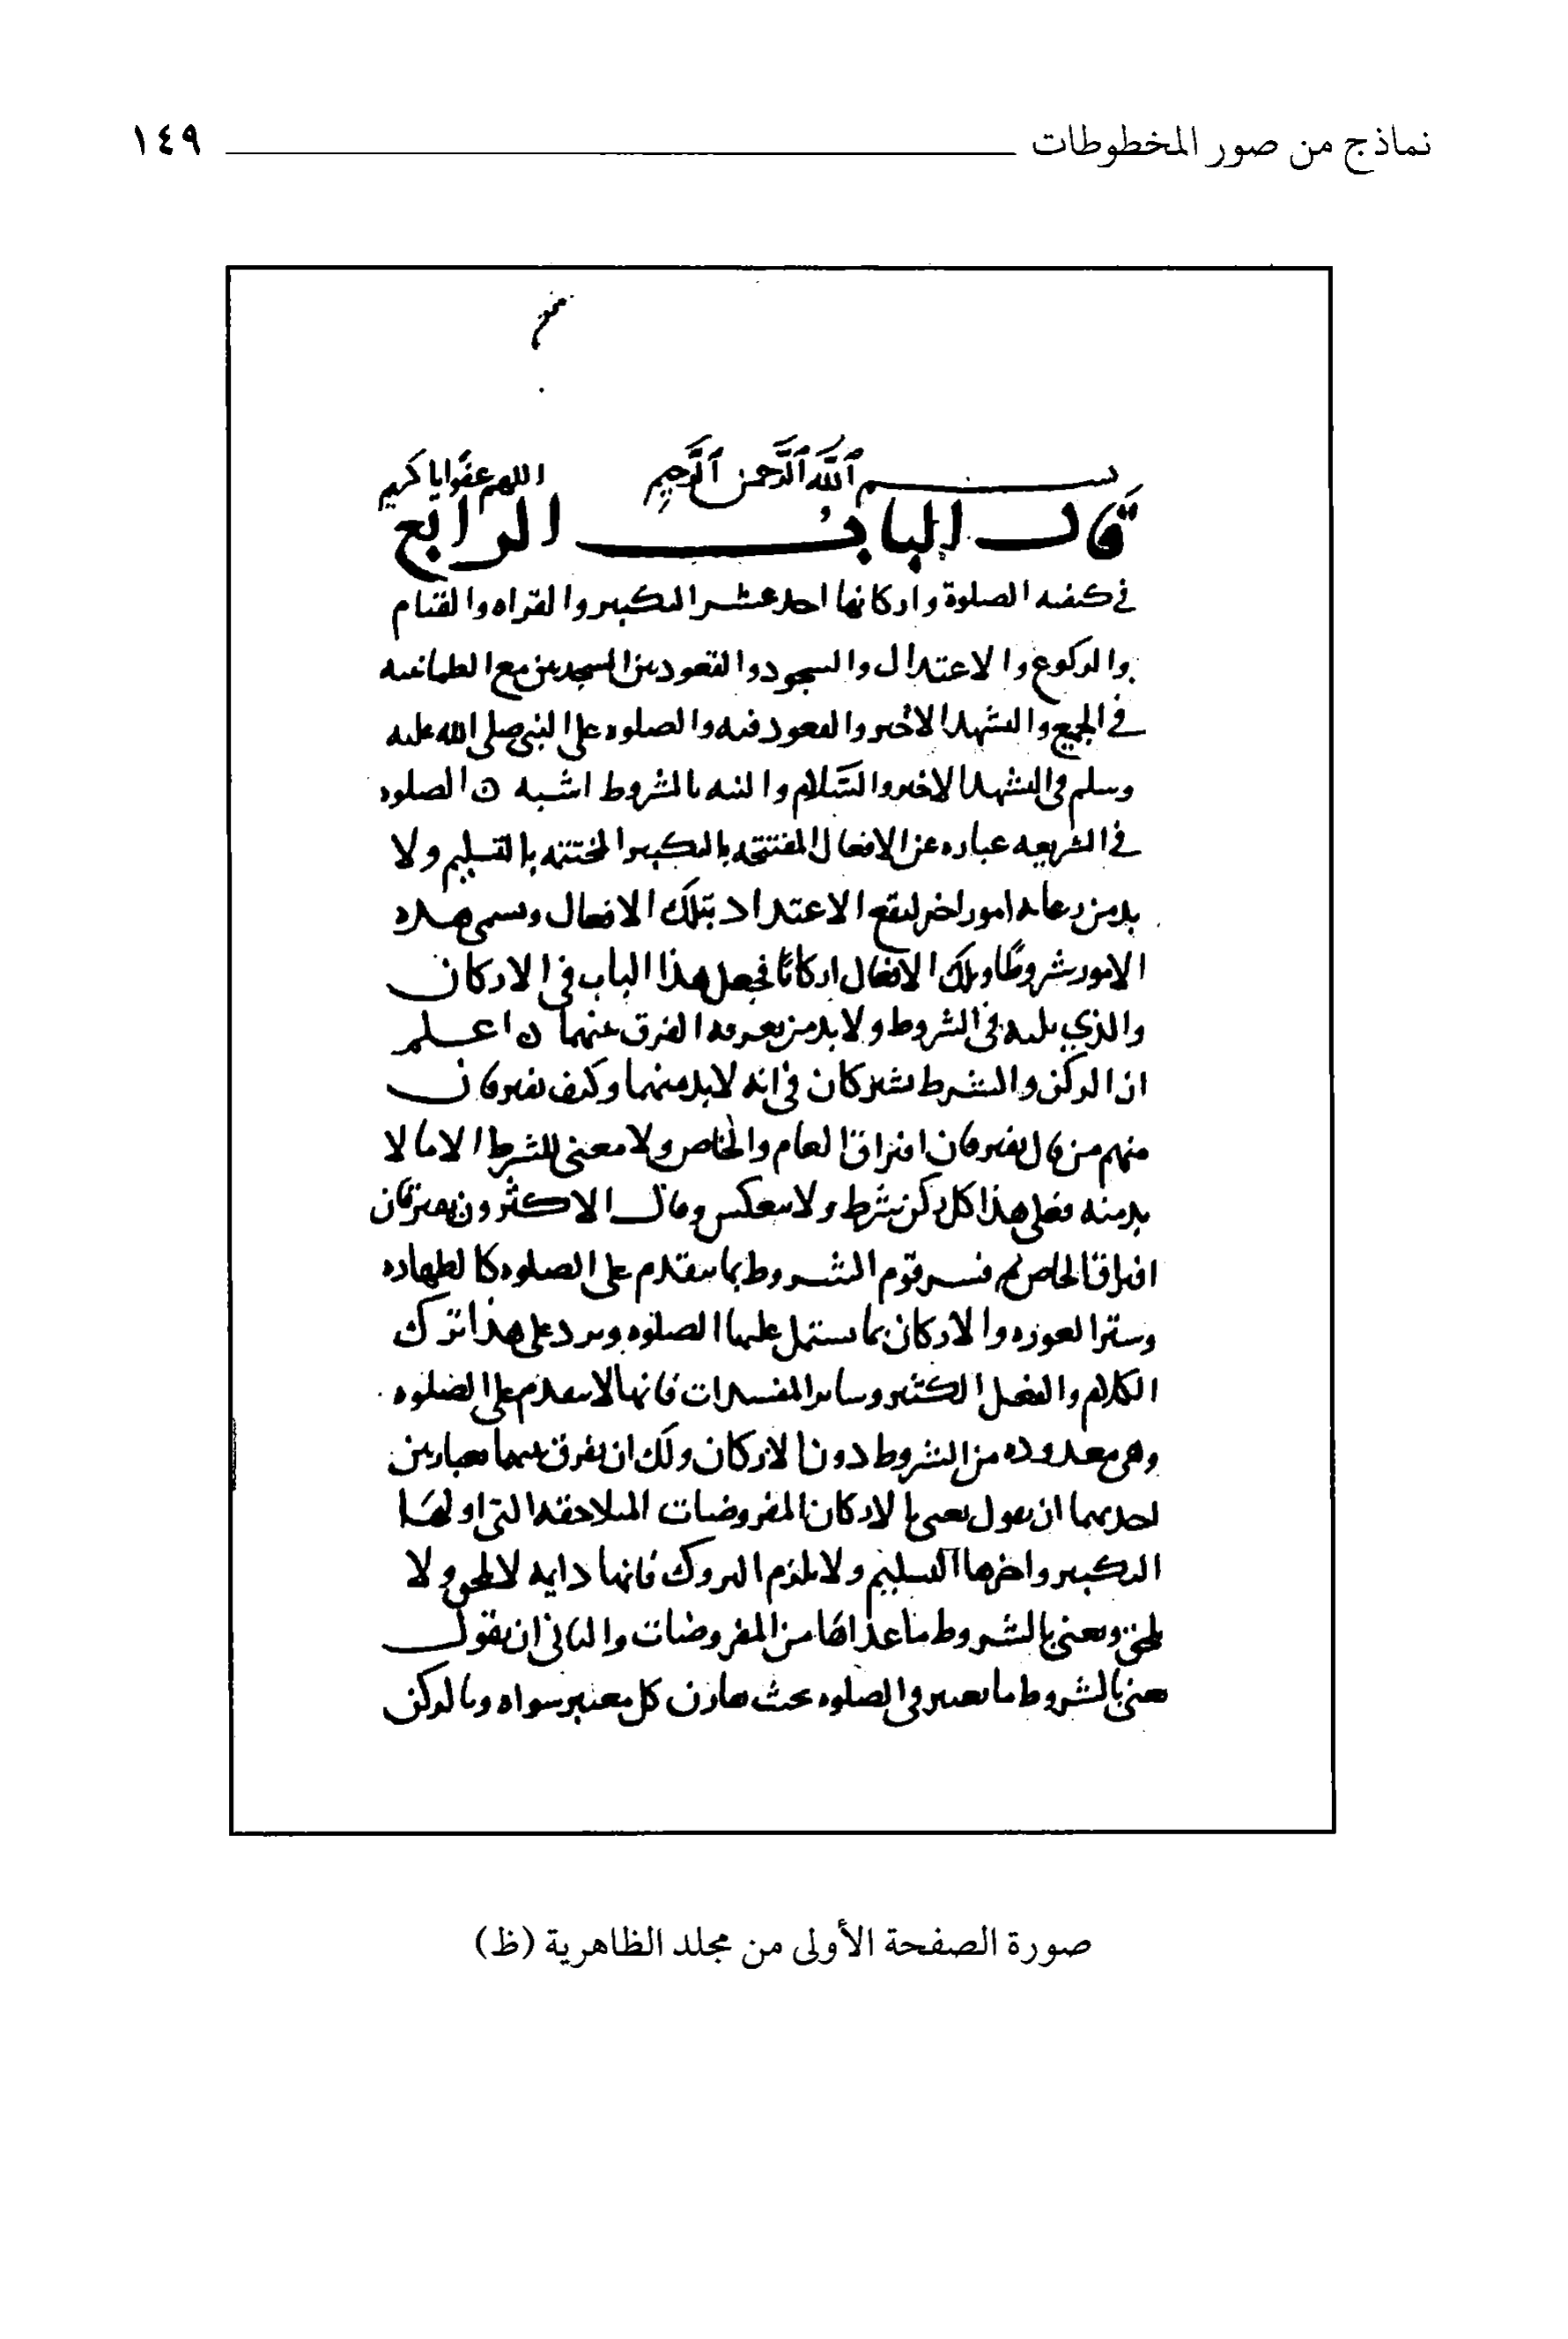 نماذج من صور المخطوطات ١٤٩
بسم الله الرحمن الرحيم اللهم عفوا يا كريم
قال الباب الرابع
في كيفية الصلوة واركانها احد عشر التكبير والقراه والقيام
والركوع والاعتدال والسجود والقعود بين السجدتين مع الطمانينه
في الجميع والتشهد الاخير والقعود فيه والصلوه على النبي صلى الله عليه
وسلم في التشهد الاخير والسلام والنيه بالشروط اشبه ن الصلوه
في الشريعه عباره عن الافعال المفتتحه بالتكبير المختتمه بالتسليم ولا
بد من رعايه امور اخر ليقع الاعتداد بتلك الافعال وتسمى هذه
الامور شروطا وتلك الافعال اركانا فجعل هذا الباب في الاركان
والذي يليه في الشروط ولا بد من معرفه الفرق بينهما ن اعلم
ان الركن والشرط يشتركان في انه لا بد منهما وكيف يفترقان
منهم من قال يفترقان افتراق العام والخاص ولا معنى للشرط الا ما لا
بد منه فعلى هذا كل ركن شرط ولا ينعكس وقال الاكثرون يفترقان
افتراق الخاص ثم فسر قوم الشروط بما يتقدم على الصلوه كالطهاره
وستر العوره والاركان بما تشتمل عليها الصلوه ويرد على هذا ترك
الكلام والفعل الكثير وساير المفسدات فانها لا تتقدم على الصلوه
وهي معدوده من الشروط دون الاركان ولك ان تفرق بينهما بعبارتين
احديهما ان تقول نعني بالاركان المفروضات المتلاحقه التي اولها
التكبير واخرها التسليم ولا يلزم التروك فانها دايمه لا تلحق ولا
تلحق ونعني بالشروط ما عداها من المفروضات والثاني ان نقول
نعني بالشروط ما يعتبر في الصلوه بحيث يقارن كل معتبر سواه وبالركن
صورة الصفحة الأولى من مجلد الظاهرية (ظ)